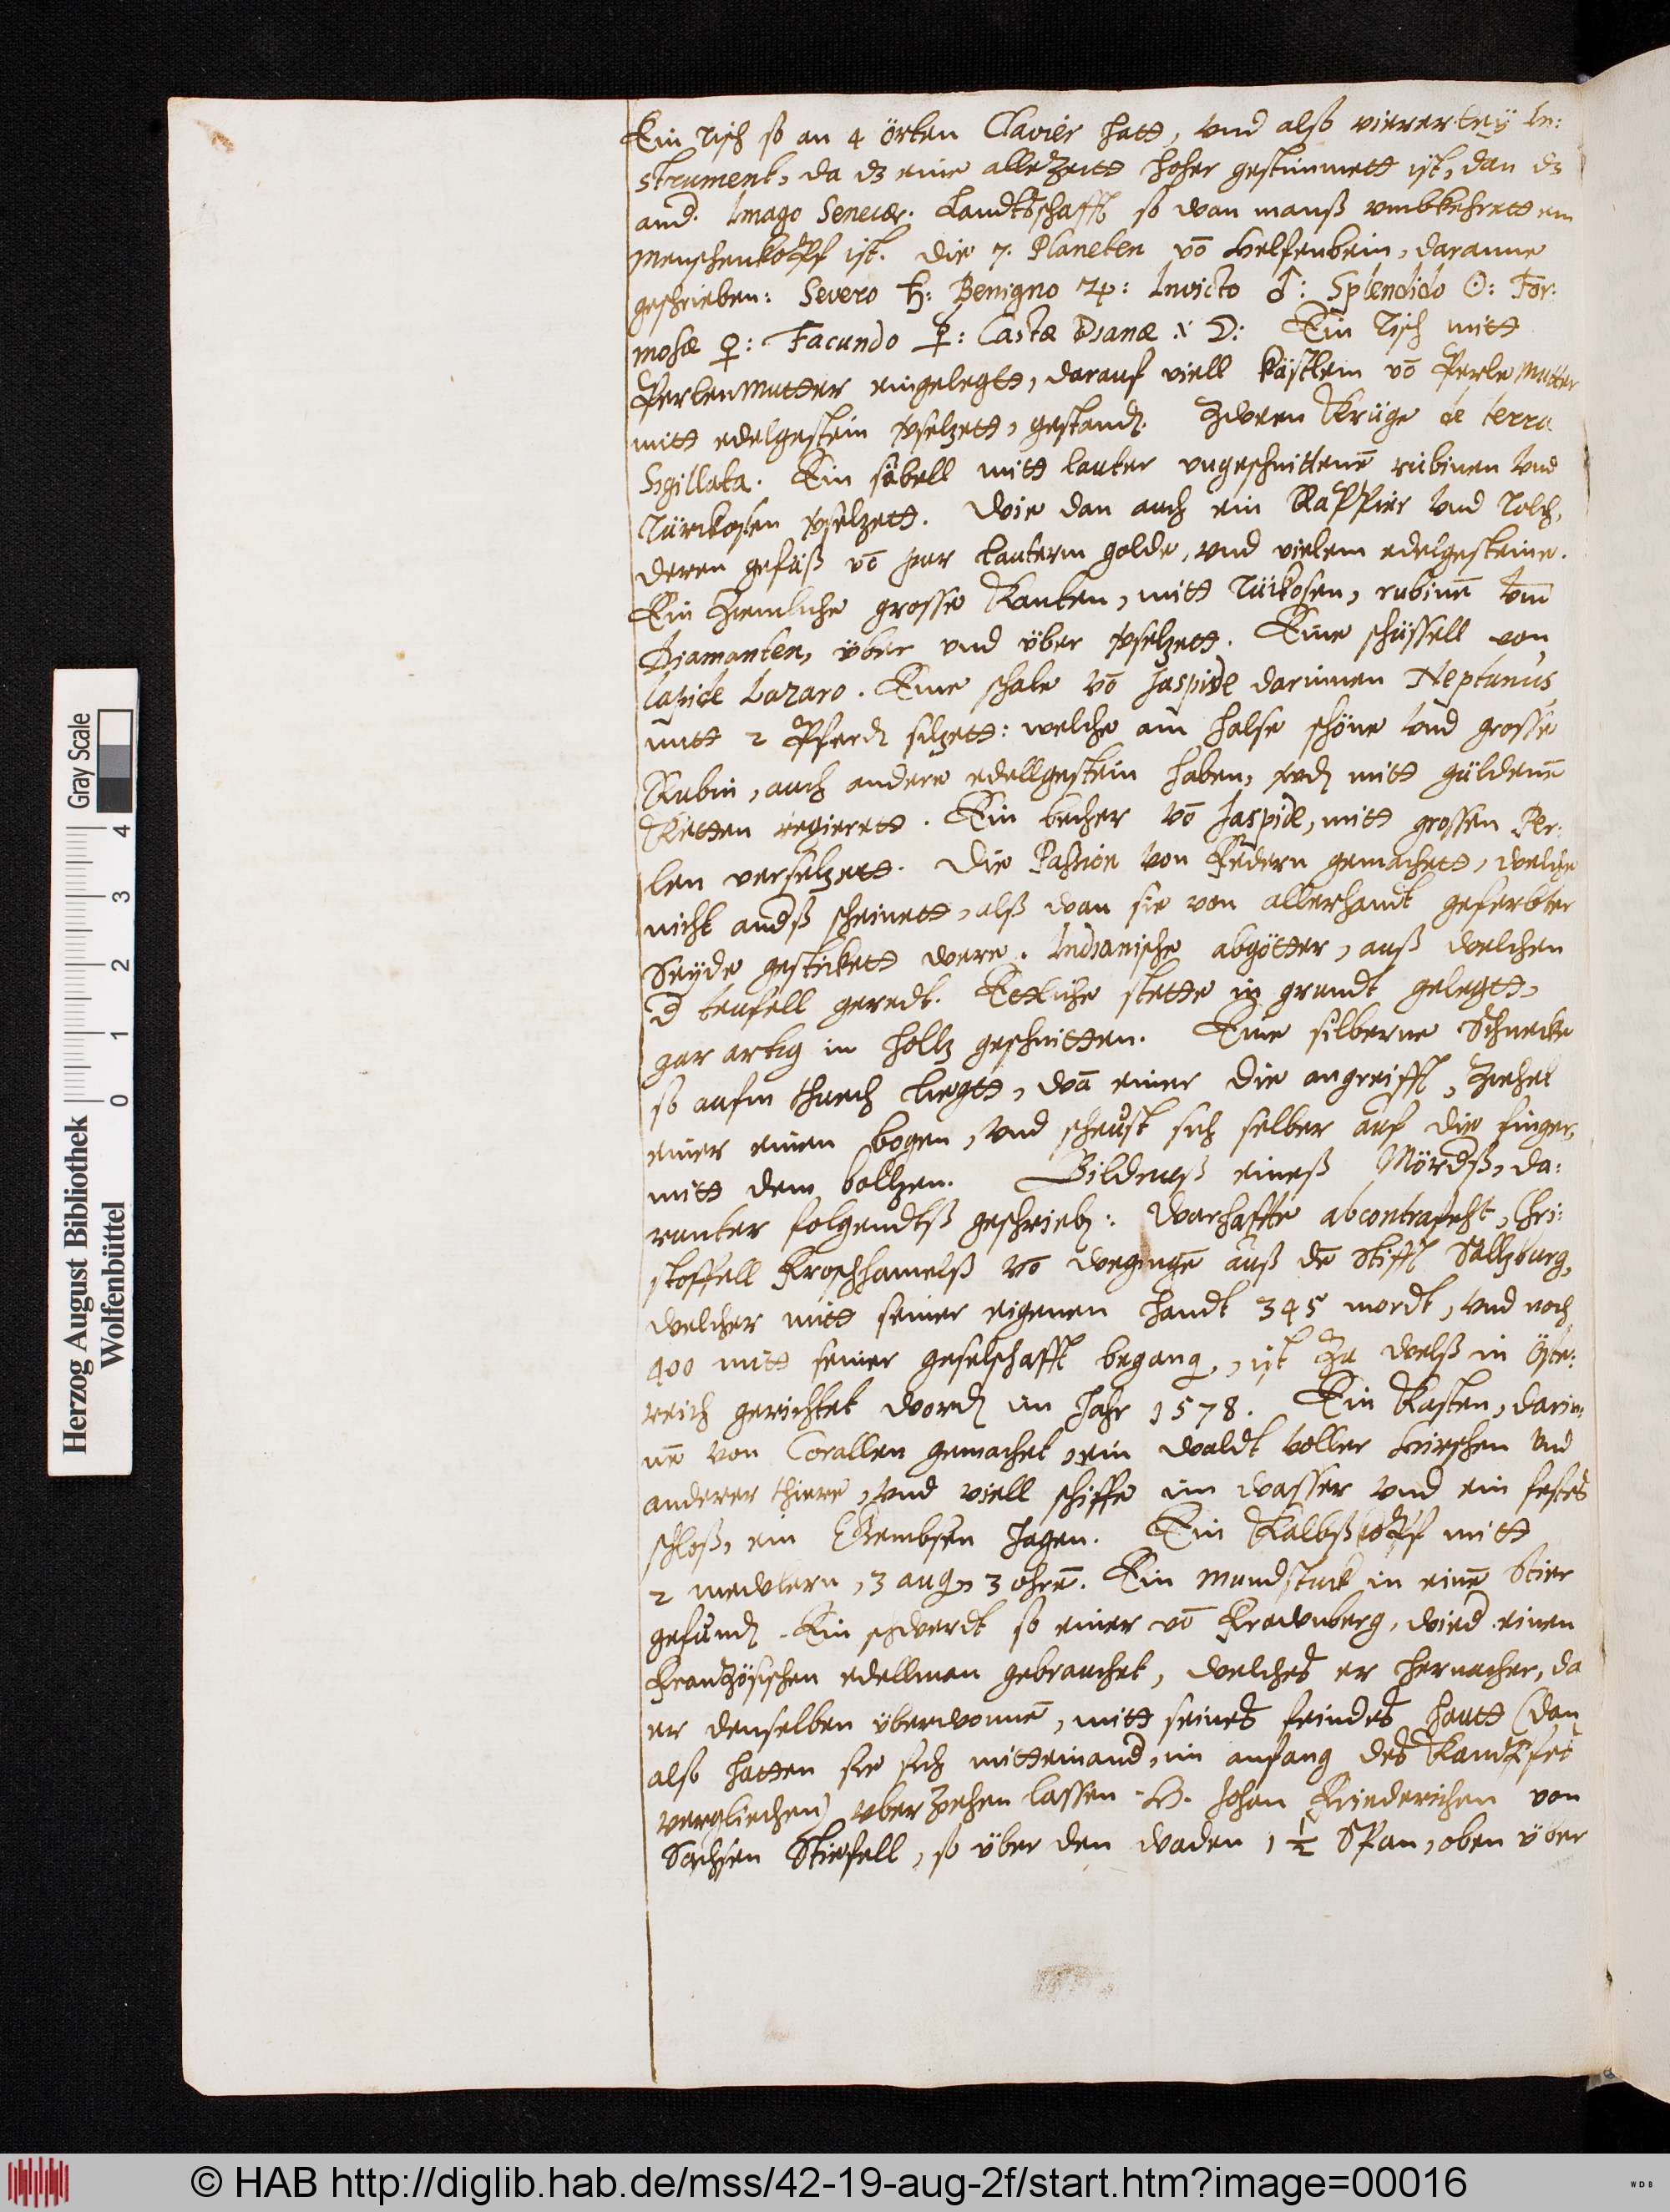 Ein Tisch so an 4 örten Clavier hatt, Vnd also viererley In:
strument, da dz eine allezeitt hoher gestimmett ist, dan dz
and. Imago Senecæ. Landtschafft so wan manß vmbkehrett ein
Menschenkopff ist. Die 7. Planeten vō Helfenbein, daranne
geschrieben: Severo ♄: Benigno ♃: Invicto ♂: Splendido ☉: For:
mosæ ♀: Facundo ☿: Castæ Dianæ ☽: Ein Tisch mitt
Perlenmutter eingelegtt, darauf viell kästlein vō Perlemutter
mitt edelgestein vsetzett, gestandē. Zween Krüge de terra
Sigillata. Ein säbell mitt lauter vngeschnittenē rubinen Vnd
Türckosen vsetzett. Wie dan auch ein Rappier Vnd Tolch,
deren gefäß vō gar lauterm golde, vnd vielem edelgesteine.
Ein Ziemliche grosse Kanten, mitt Türkosen, rubinē Vnd
Diamanten, über vnd über vsetzett. Eine schüssell von
lapide Lazaro. Eine schale Vō Jaspide darinnen Neptunus
mitt 2 Pferdē sitzett: welche am halse schöne Vnd grosse
Rubin, auch andere edellgestein haben, vndē mitt güldenē
Ketten regierett. Ein becher Vō Jaspide, mitt grossen Per:
len versetzett. Die Passion Von Federn gemachett, welche
nicht andß scheinett, alß wan sie von allerhandt geferbter
Seyde gestickett were. Indianische abgötter, auß welchen
d teufell geredt. Ettliche stette in grundt gelegtt,
gar artig in holtz geschnitten. Eine silberne Schnecke
so aufm thuech liegtt, wā einer die angreifft, Ziehet
einer einen bogen, Vnd scheust sich selber auf die finger,
mitt dem boltzen. Bildnuß eineß Mördß, da:
runter folgendtß geschriebē: Warhaffte abcontrafeht, Chri:
stoffell Froschhamelß Vō weginge auß dē Stifft Saltzburg,
welcher mitt seiner eigenen handt 345 mordt, Vnd noch
400 mitt seiner geselschafft begang, ist Zu Welß in Öste:
reich gerichtet wordē im Jahr 1578. Ein Kasten, darin
nē von Corallen gemachet, ein waldt Voller Hirschen Vnd
anderer thiere, Vnd viell schiffe im wasser Vnd ein festes
schloß, ein Gembsen Jagen. Ein Kalbßkopff mitt
2 meulern, 3 aug, 3 ohrē. Ein Mundstuck in einē Stier
gefundē. Ein schwerdt so einer vō Frewnberg, wied einen
Frantzösischen edellman gebrauchet, welches er hernacher, da
er denselben überwonnē, mitt seines feindes hautt (dan
also hatten sie sich mitteinand, im anfang des Kampfes
vergliechen) vberziehen lassen. H. Johan Friederichen von
Sachsen Stiefell, so über den waden 1 ½ Span, oben über
Herzog August Bibliothek
Wolfenbüttel
0 1 2 3 4
Gray Scale
© HAB http://diglib.hab.de/mss/42-19-aug-2f/start.htm?image=00016
WDB